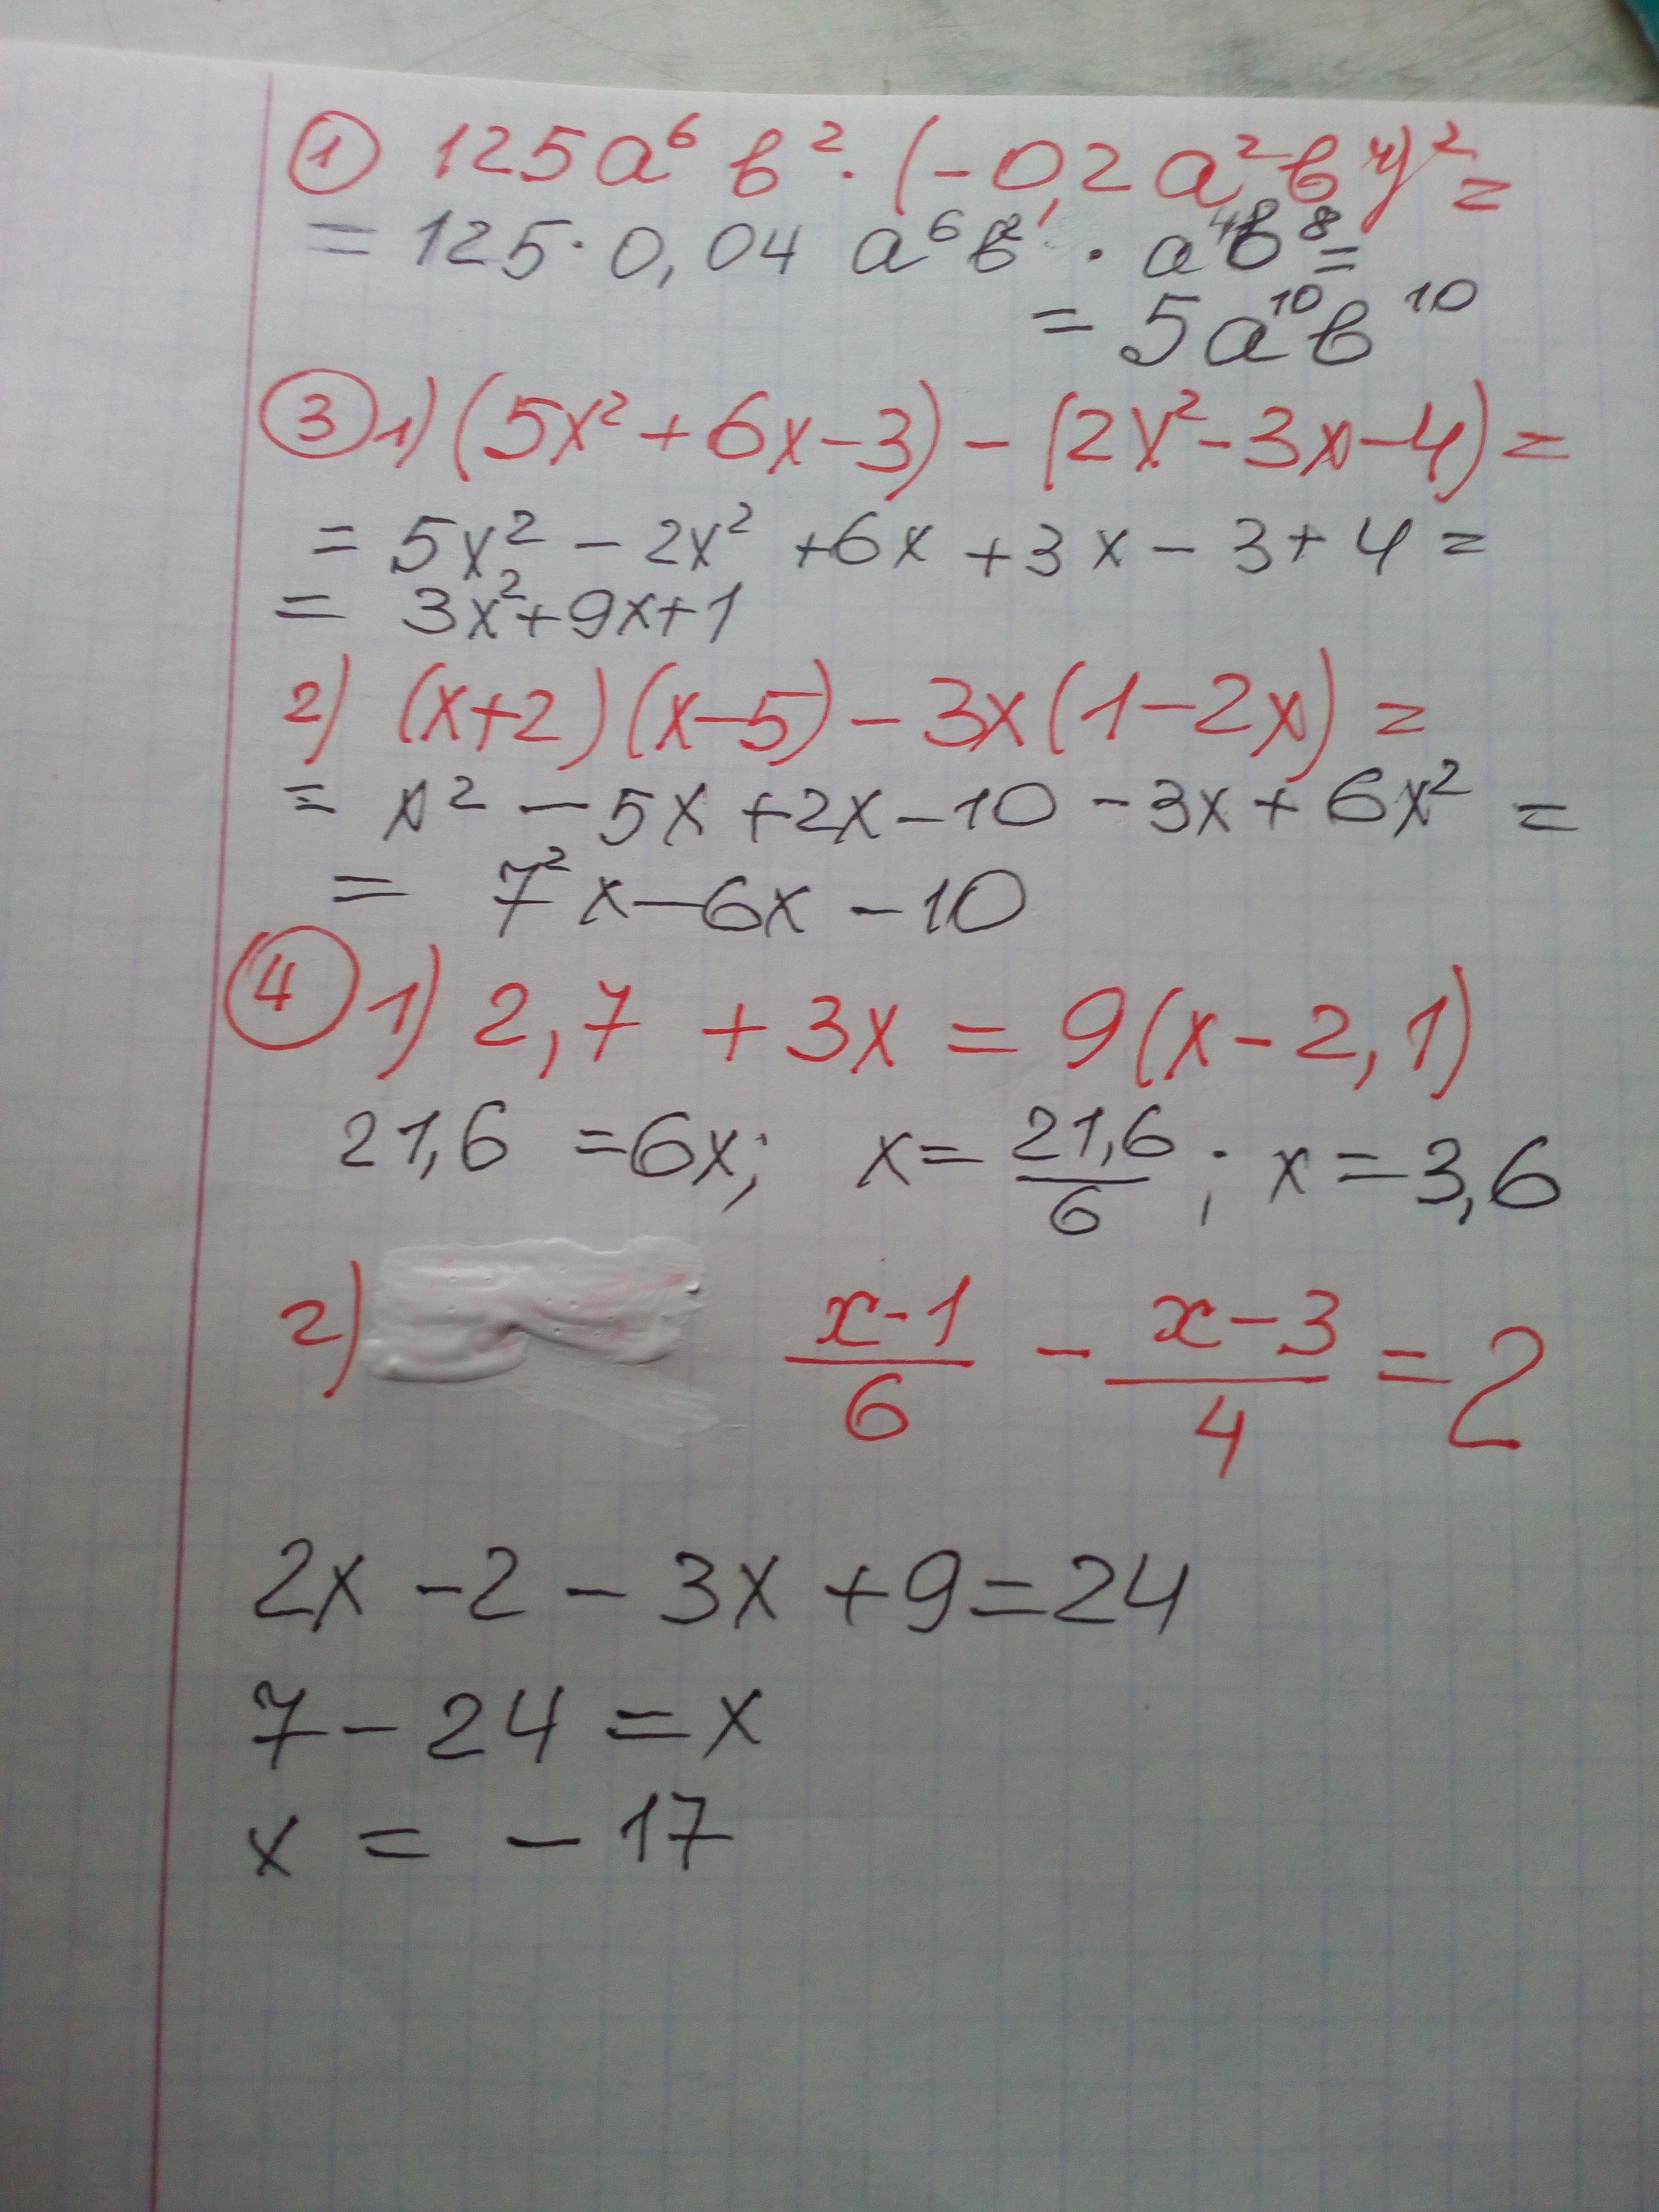 ① 125a⁶в²·(-0,2a²в⁴)²=
=125·0,04 a⁶в²·a⁴в⁸=
=5a¹⁰в¹⁰
③ 1) (5x²+6x-3)-(2x²-3x-4)=
=5x²-2x²+6x+3x-3+4=
=3x²+9x+1
2) (x+2)(x-5)-3x(1-2x)=
=x²-5x+2x-10-3x+6x²=
=7²x-6x-10
④ 1) 2,7+3x=9(x-2,1)
21,6=6x; x=21,6/6; x=3,6
2) (x-1)/6-(x-3)/4=2
2x-2-3x+9=24
7-24=x
x=-17